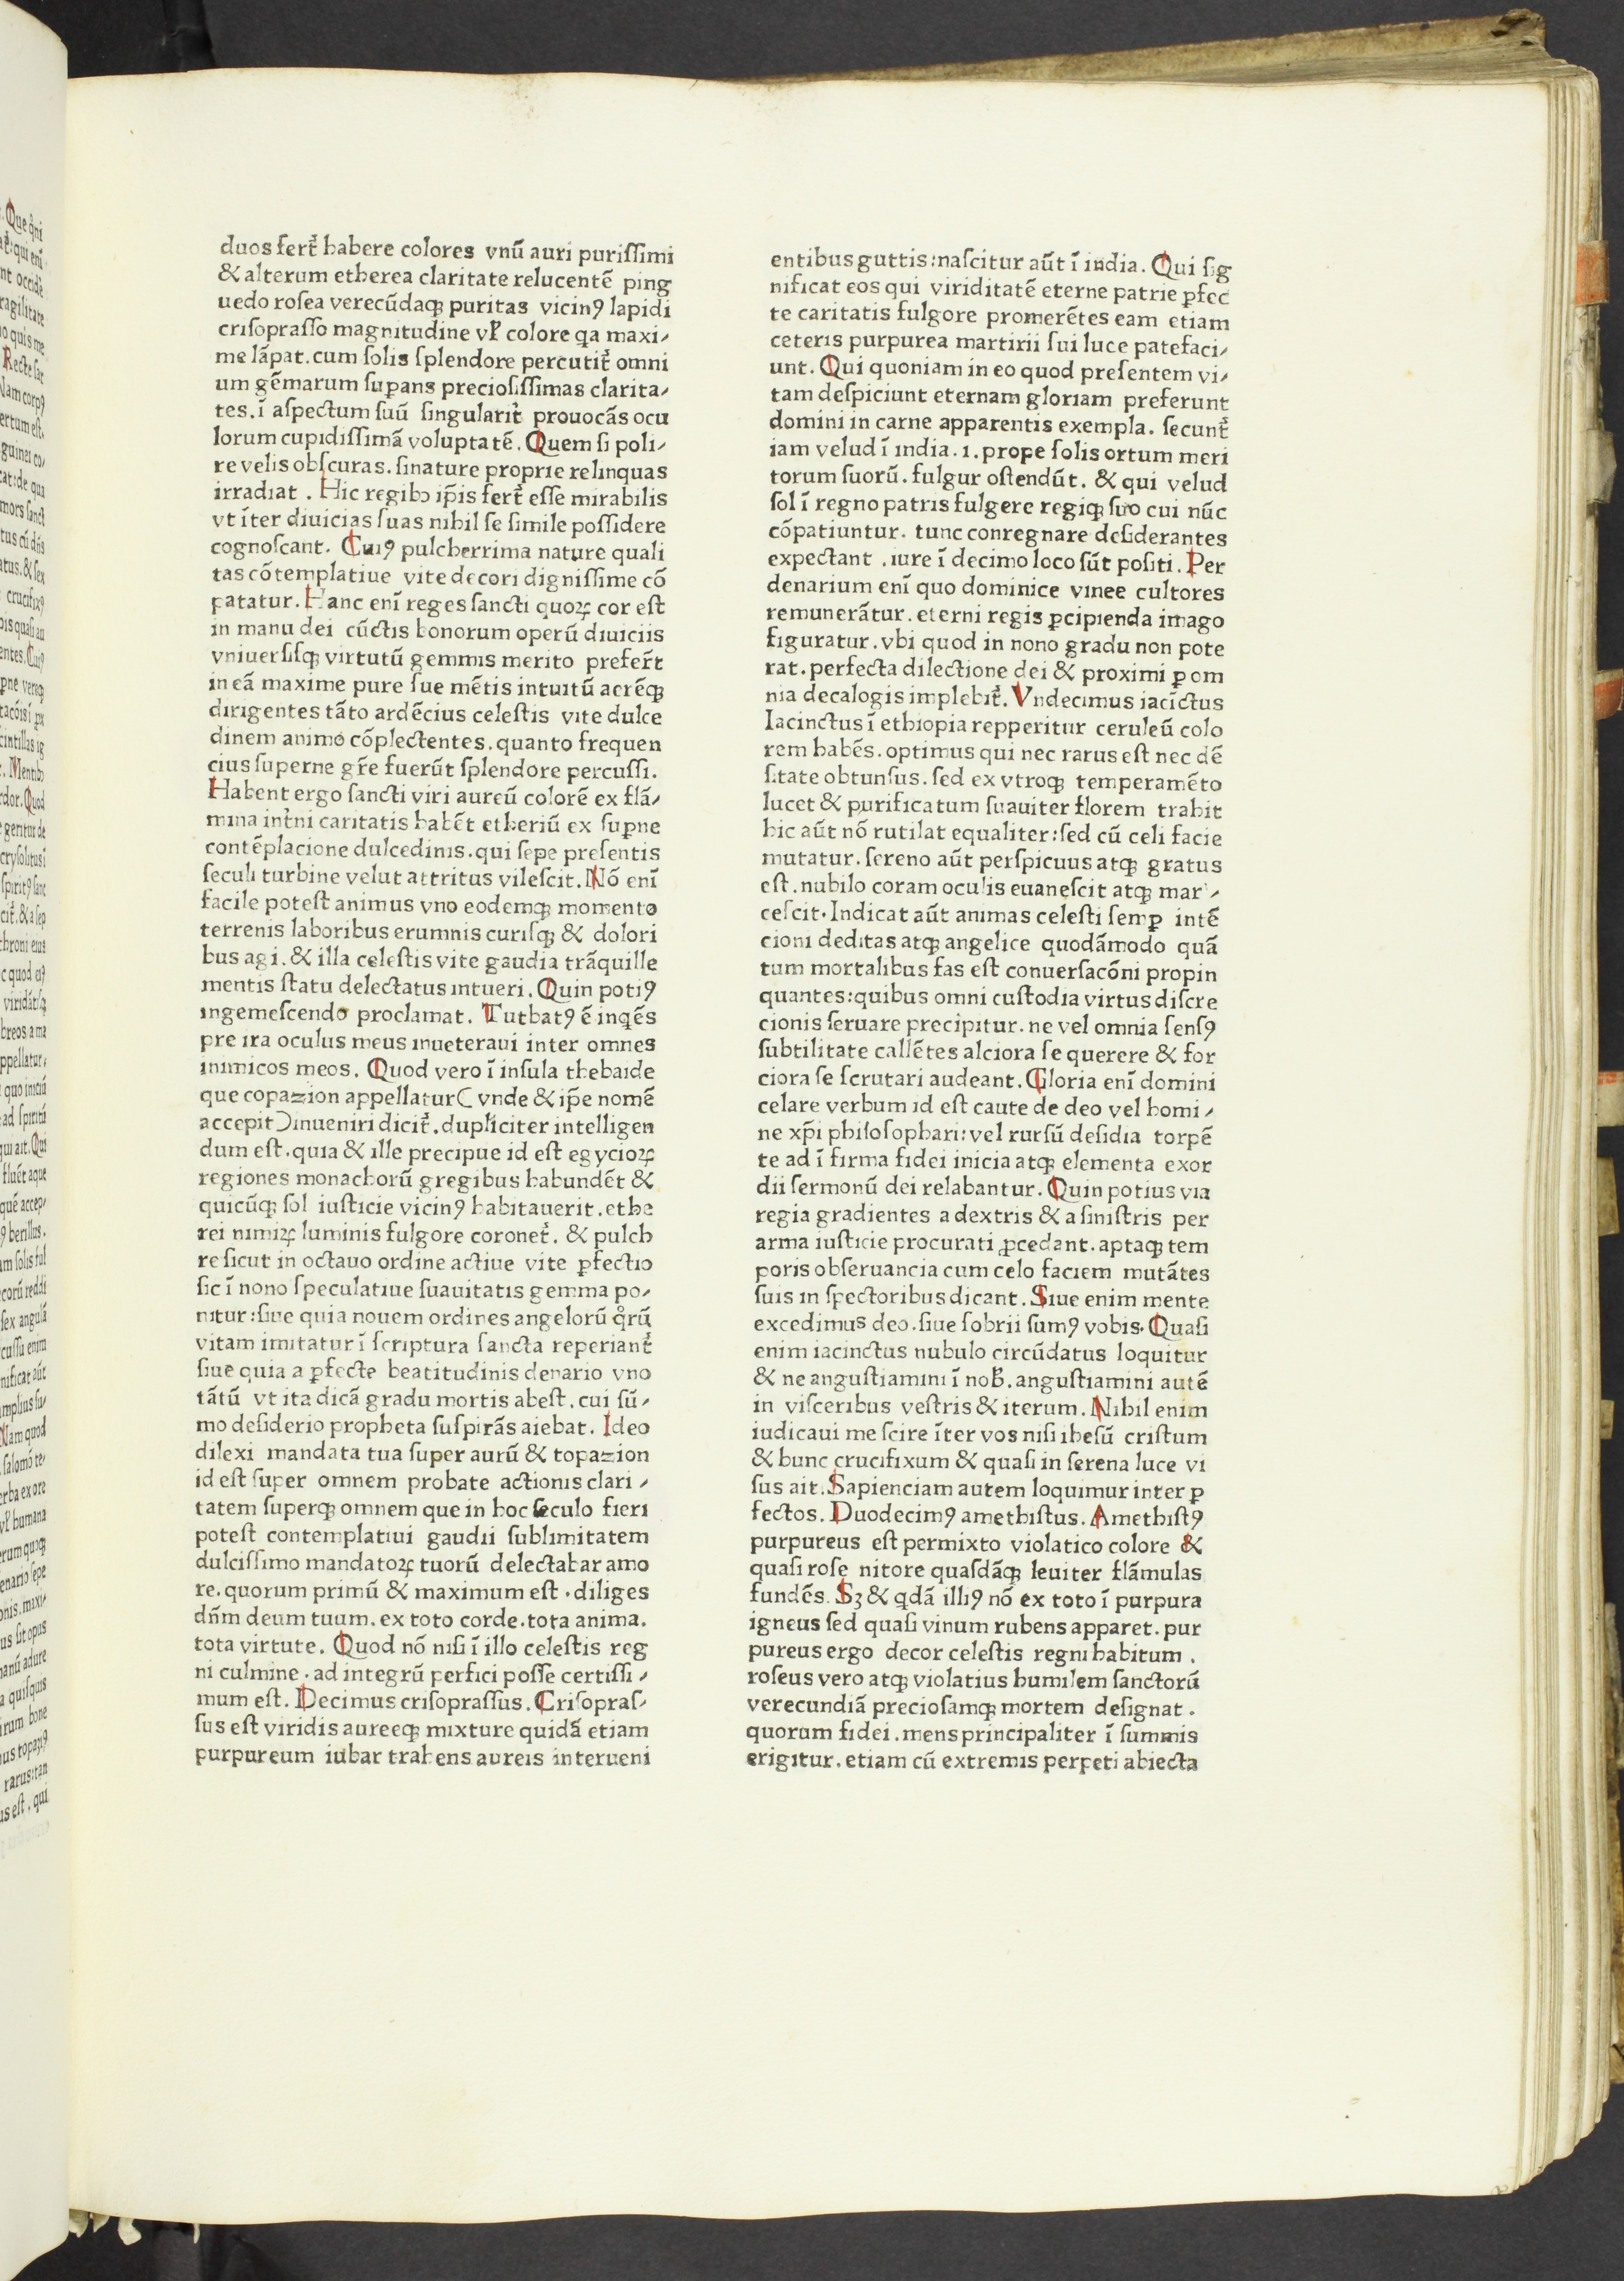 duos fert᷑ habere colores vnū auri puriſſimi
& alterum etherea claritate relucentē ping
uedo roſea verecūdaqꝫ puritas vicinꝰ lapidi
criſopraſſo magnitudine vł colore qa maxi⸗
me lāpat. cum ſolis ſplendore percutit᷑ omni
um gēmarum ſuꝑans precioſiſſimas clarita⸗
tes. ī aſpectum ſuū ſingularit᷑ prouocās ocu
lorum cupidiſſimā voluptatē. Quem ſi poli⸗
re velis obſcuras. ſinature proprie relinquas
irradiat . Hic regibꝫ ip̄is fert᷑ eſſe mirabilis
vt īter diuicias ſuas nihil ſe ſimile poſſidere
cognoſcant. Cuiꝰ pulcherrima nature quali
tas cōtemplatiue vite decori digniſſime cō
patatur. Hanc enī reges ſancti quoꝝ cor eſt
in manu dei cūctis bonorum operū diuiciis
vniuerſiſqꝫ virtutū gemmis merito prefer̄t
in eā maxime pure ſue mētis intuitū acrēqꝫ
dirigentes tāto ardēcius celeſtis vite dulce
dinem animo cōplectentes. quanto frequen
cius ſuperne gr̄e fuerūt ſplendore percuſſi.
Habent ergo ſancti viri aureū colorē ex flā⸗
mina int᷑ni caritatis habēt etheriū ex ſuꝑne
contēplacione dulcedinis. qui ſepe preſentis
ſeculi turbine velut attritus vileſcit. Nō enī
facile poteſt animus vno eodemqꝫ momento
terrenis laboribus erumnis curiſqꝫ & dolori
bus agi. & illa celeſtis vite gaudia trāquille
mentis ſtatu delectatus intueri. Quin potiꝰ
ingemeſcendo proclamat. Tutbatꝰ ē inqēs
pre ira oculus meus inueteraui inter omnes
inimicos meos. Quod vero ī inſula thebaide
que copazion appellatur( vnde & ip̄e nomē
accepit )inueniri dicit᷑. dupłiciter intelligen
dum eſt. quia & ille precipue id eſt egycioꝝ
regiones monachorū gregibus habundēt &
quicūqꝫ ſol iuſticie vicinꝰ habitauerit. ethe
rei nimiꝝ luminis fulgore coronet᷑. & pulch
re ſicut in octauo ordine actiue vite ꝑfectio
ſic ī nono ſpeculatiue ſuauitatis gemma po⸗
nitur: ſiue quia nouem ordines angelorū qͦrū
vitam imitatur ī ſcriptura ſancta reperiant᷑
ſiue quia a ꝑfecte beatitudinis denario vno
tātū vt ita dicā gradu mortis abeſt. cui ſū⸗
mo deſiderio propheta ſuſpirās aiebat. Ideo
dilexi mandata tua ſuper aurū & topazion
id eſt ſuper omnem probate actionis clari ⸗
tatem ſuperqꝫ omnem que in hoc ſeculo fieri
poteſt contemplatiui gaudii ſublimitatem
dulciſſimo mandatoꝝ tuorū delectabar amo
re. quorum primū & maximum eſt . diliges
dn̄m deum tuum. ex toto corde. tota anima.
tota virtute. Quod nō niſi ī illo celeſtis reg
ni culmine . ad integrū perfici poſſe certiſſi ⸗
mum eſt. Decimus criſopraſſus. Criſopraſ⸗
ſus eſt viridis aureeqꝫ mixture quidā etiam
purpureum iubar trahens aureis interueni
entibus guttis: naſcitur aūt ī india. Qui ſig
nificat eos qui viriditatē eterne patrie ꝑfec
te caritatis fulgore promerētes eam etiam
ceteris purpurea martirii ſui luce patefaci⸗
unt. Qui quoniam in eo quod preſentem vi⸗
tam deſpiciunt eternam gloriam preferunt
domini in carne apparentis exempla. ſecunt᷑
iam velud ī india. i. prope ſolis ortum meri
torum ſuorū. fulgur oſtendūt. & qui velud
ſol ī regno patris fulgere regiqꝫ ſuo cui nūc
cōpatiuntur. tunc conregnare deſiderantes
expectant . iure ī decimo loco ſūt poſiti. Per
denarium enī quo dominice vinee cultores
remunerātur. eterni regis ꝑcipienda imago
figuratur. vbi quod in nono gradu non pote
rat. perfecta dilectione dei & proximi ꝑ om
nia decalogis implebit᷑. Vndecimus iacīctus
Iacinctus ī ethiopia repperitur ceruleū colo
rem habēs. optimus qui nec rarus eſt nec dē
ſitate obtunſus. ſed ex vtroqꝫ temperamēto
lucet & purificatum ſuauiter florem trahit
hic aūt nō rutilat equaliter: ſed cū celi facie
mutatur. ſereno aūt perſpicuus atqꝫ gratus
eſt. nubilo coram oculis euaneſcit atqꝫ mar ⸗
ceſcit. Indicat aūt animas celeſti ſemꝑ intē
cioni deditas atqꝫ angelice quodāmodo quā
tum mortalibus fas eſt conuerſacōni propin
quantes: quibus omni cuſtodia virtus diſcre
cionis ſeruare precipitur. ne vel omnia ſenſꝰ
ſubtilitate callētes alciora ſe querere & for
ciora ſe ſcrutari audeant. Gloria enī domini
celare verbum id eſt caute de deo vel homi ⸗
ne xp̄i philoſophari: vel rurſū deſidia torpē
te ad ī firma fidei inicia atqꝫ elementa exor
dii ſermonū dei relabantur. Quin potius via
regia gradientes a dextris & a ſiniſtris per
arma iuſticie procurati ꝓcedant. aptaqꝫ tem
poris obſeruancia cum celo faciem mutātes
ſuis in ſpectoribus dicant. Siue enim mente
excedimus deo. ſiue ſobrii ſumꝰ vobis. Quaſi
enim iacinctus nubulo circūdatus loquitur
& ne anguſtiamini ī nob̄. anguſtiamini autē
in viſceribus veſtris & iterum. Nihil enim
iudicaui me ſcire īter vos niſi iheſū criſtum
& hunc crucifixum & quaſi in ſerena luce vi
ſus ait. Sapienciam autem loquimur inter ꝑ
fectos. Duodecimꝰ amethiſtus. Amethiſtꝰ
purpureus eſt permixto violatico colore &
quaſi roſe nitore quaſdāqꝫ leuiter flāmulas
fundēs. Sꝫ & qdā illiꝰ nō ex toto ī purpura
igneus ſed quaſi vinum rubens apparet. pur
pureus ergo decor celeſtis regni habitum .
roſeus vero atqꝫ violatius humilem ſanctorū
verecundiā precioſamqꝫ mortem deſignat .
quorum fidei . mens principaliter ī ſummis
erigitur. etiam cū extremis perpeti abiecta